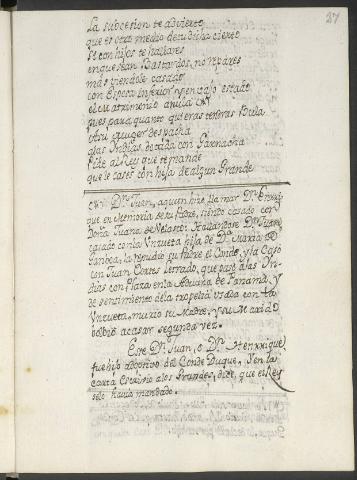 27
La subcesion te advierto
que es otra medio de tu dicha cierto
si con hijos te hallares
enque sean Bastardos, no repares
mas viendole casado
con Esposa inferior y en vajo estado
el Matrimonio anula (*)
pues para quanto quieras tendras Bula
a su muger despacha
a las Indias, de toda con Garnacha
Pide al Rey que te mande
que le cases con hija de algun Grande
(*) Dn. Juan, a quien hizo llamar Dn. Enrri
que en Memoria de su Padre, siendo casado con
Doña Juana de Velasco: hallandose Dn. Juan
casado con la Unzueta hija de Da. Maria de
Ganboa; la repudio su Padre el Conde, y la Casó
con Juan Cortes Letrado, que pasó a las In
dias con Plaza en la Aduana de Panamá, y
de sentimiento de la tropelia usada con la
Unzueta, murio su Madre, y su Marido
bolbio a casar segunda vez.
Este Dn. Juan, o Dn. Henrrique
fue hijo adoptivo del Conde Duque, y en la
carta Escrivio a los Grandes, dice, que el Rey
selo havia mandado.